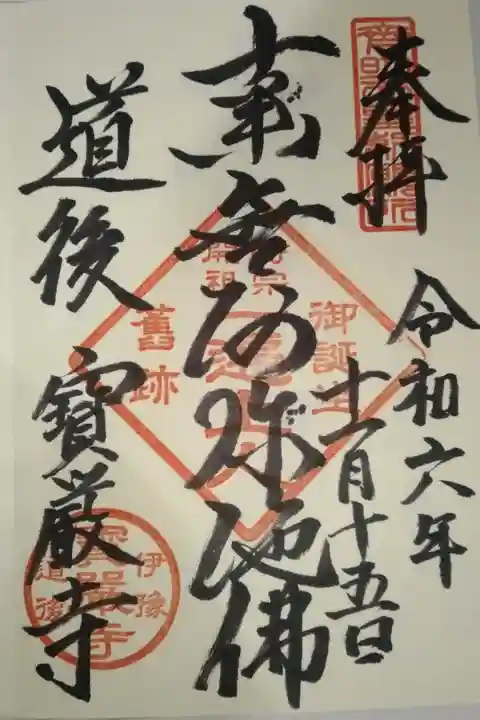 奉拝
令和六年
十一月十五日
南無阿弥陀佛
道後 寶厳寺
時宗
開祖
御誕生
一遍
舊跡
伊豫
道後
寶嚴寺